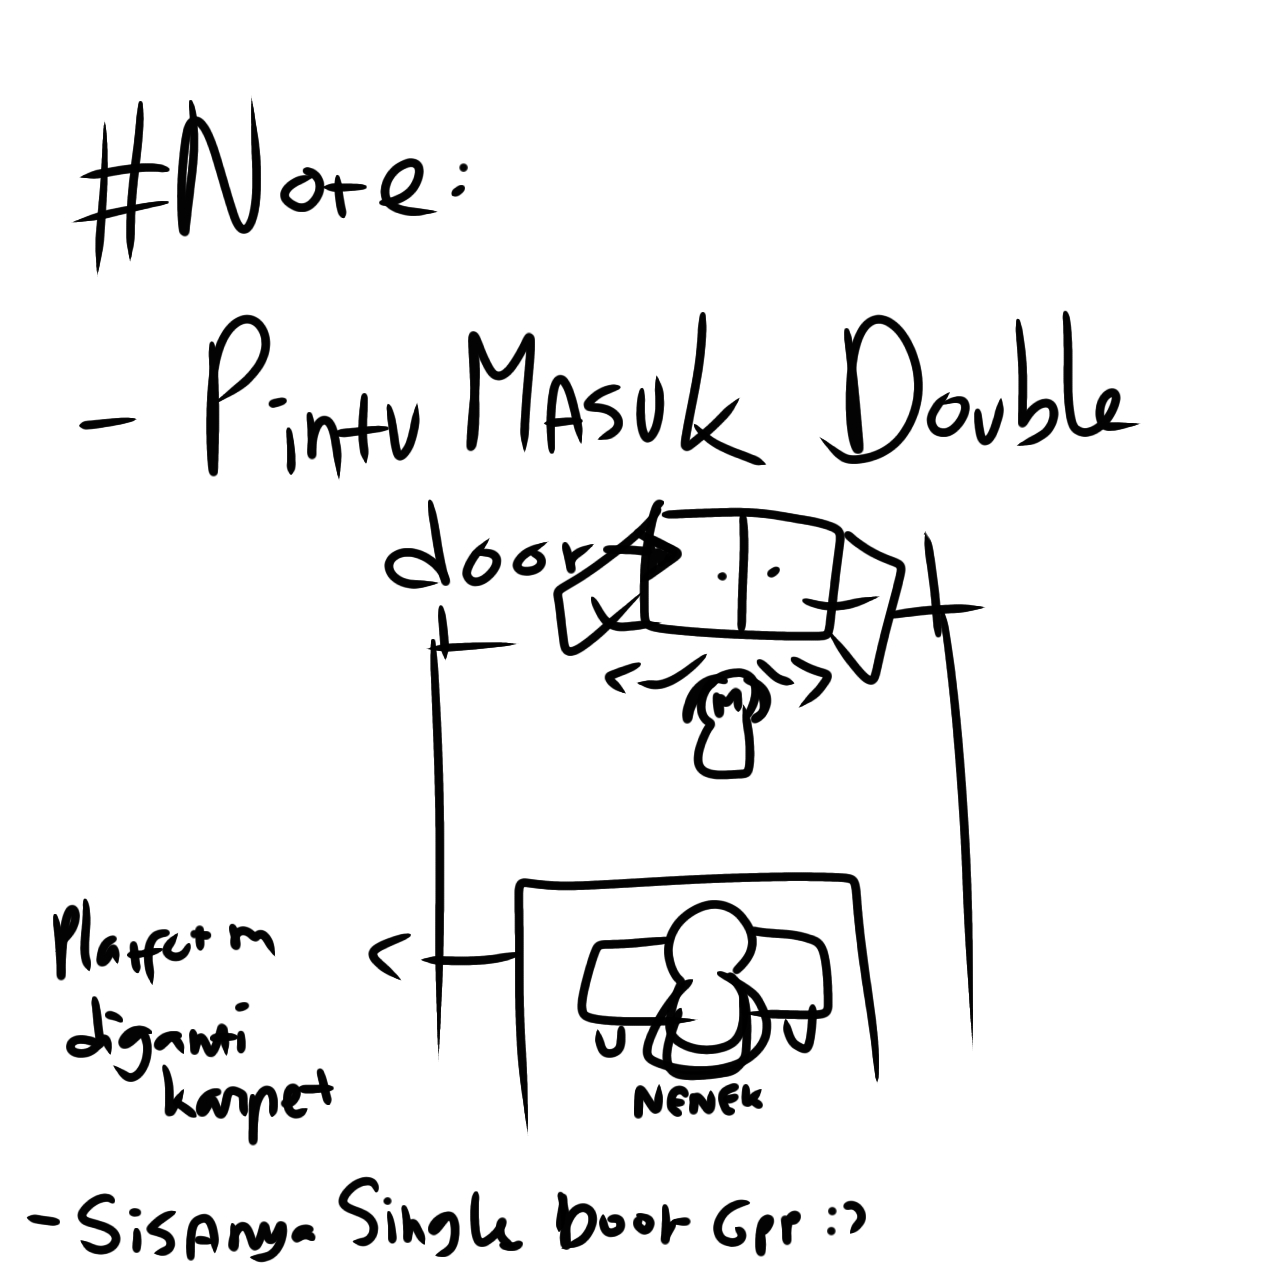 #Note:
- Pintu MASUK Double
door
M
Platform
diganti
karpet
NENEK
- SisAnya Single Door Gpp :)